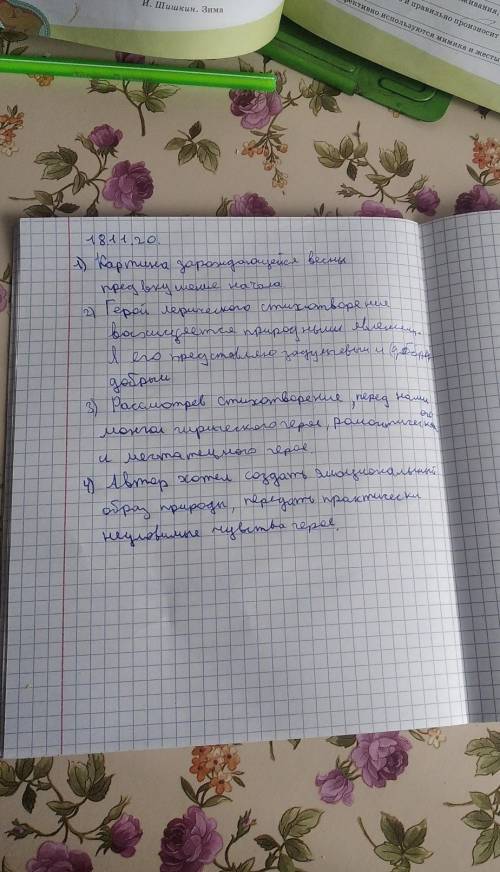 И. Шишкин. Зима
и правильно произносит
используются мимика и жесты
18.11.20.
1) Картина зарождающейся весны
предвкушение начала
2) Герой лерического стихотворение
восхищяется природными явлениц.
Я его представляю задумчевым и добрая
добрым
3) Рассмотрев стихотворение, перед нами
монгол лирического героя, романтического
и мечтательного героя.
4) Автор хотел создать эмоциональный
образ природы, передать практически
неуловимые чувства героя.